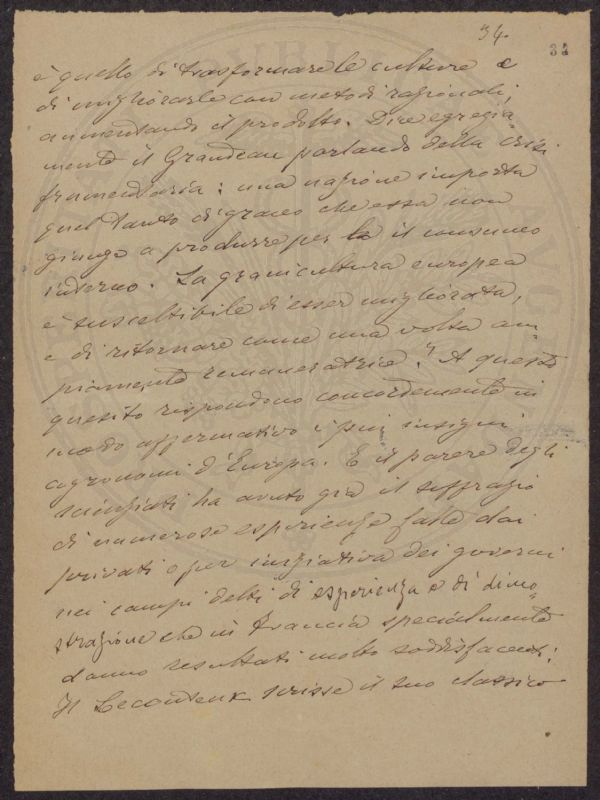 34.
34
è quello di trasformare le culture e
di migliorarle con metodi razionali,
aumentando il prodotto. Dice egregia-
mente il Grandeau parlando della crisi
frumentaria: una nazione importa
quel tanto di grano che essa non
giunge a produrre per il consumo
interno. La granicultura europea
è suscettibile di esser migliorata,
e di ritornare come una volta am-
piamente remuneratrice? A questo
quesito rispondono concordemente in
modo affermativo i più insigni
agronomi d'Europa. E il parere degli
scienziati ha avuto già il suffragio
di numerose esperienze fatte dai
privati o per iniziativa dei governi
nei campi detti di esperienza e di dimo-
strazione che in Francia specialmente
danno resultati molto soddisfacenti.
Il Lecouteux scrisse il suo classico